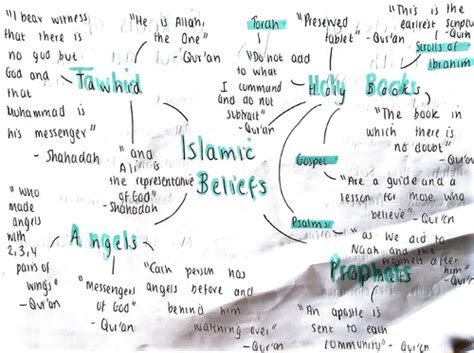 "I bear witness
that there is
no god but
God and
that
Muhammad is
his messenger"
- Shahadah
"He is Allah,
the One"
- Qur'an
Tawhid
"and
Ali is
the representative
of God"
- Shahadah
Islamic
Beliefs
Torah
"Do not add
to what
I command
and do not
subtract"
- Qur'an
"Preserved
tablet"
- Qur'an
Holy Books
"This is the
earliest
- Qur'an
Scrolls of
Ibrahim
"The book in
which there is
no doubt"
- Qur'an
Gospel
"Are a guide and a
lesson for those who
believe" - Qur'an
Psalms
"as we did to
Noah and the
prophets after
him" - Qur'an
Prophets
"An apostle is
sent to each
community"
- Qur'an
"who
made
angels
with
2,3,4
pairs of
wings"
- Qur'an
Angels
"Messengers
of God"
- Qur'an
"Each person has
angels before and
behind him
watching over"
- Qur'an